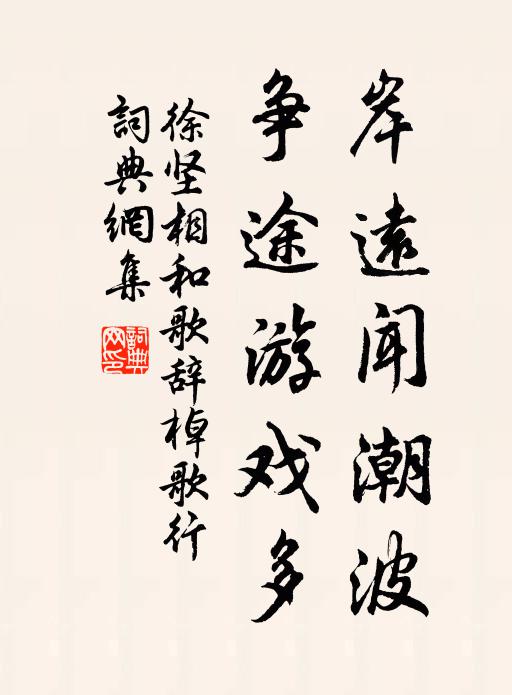 岸遠闻潮波
争途游戏多
徐坚相和歌辞棹歌行
詞典網集
詞典网印